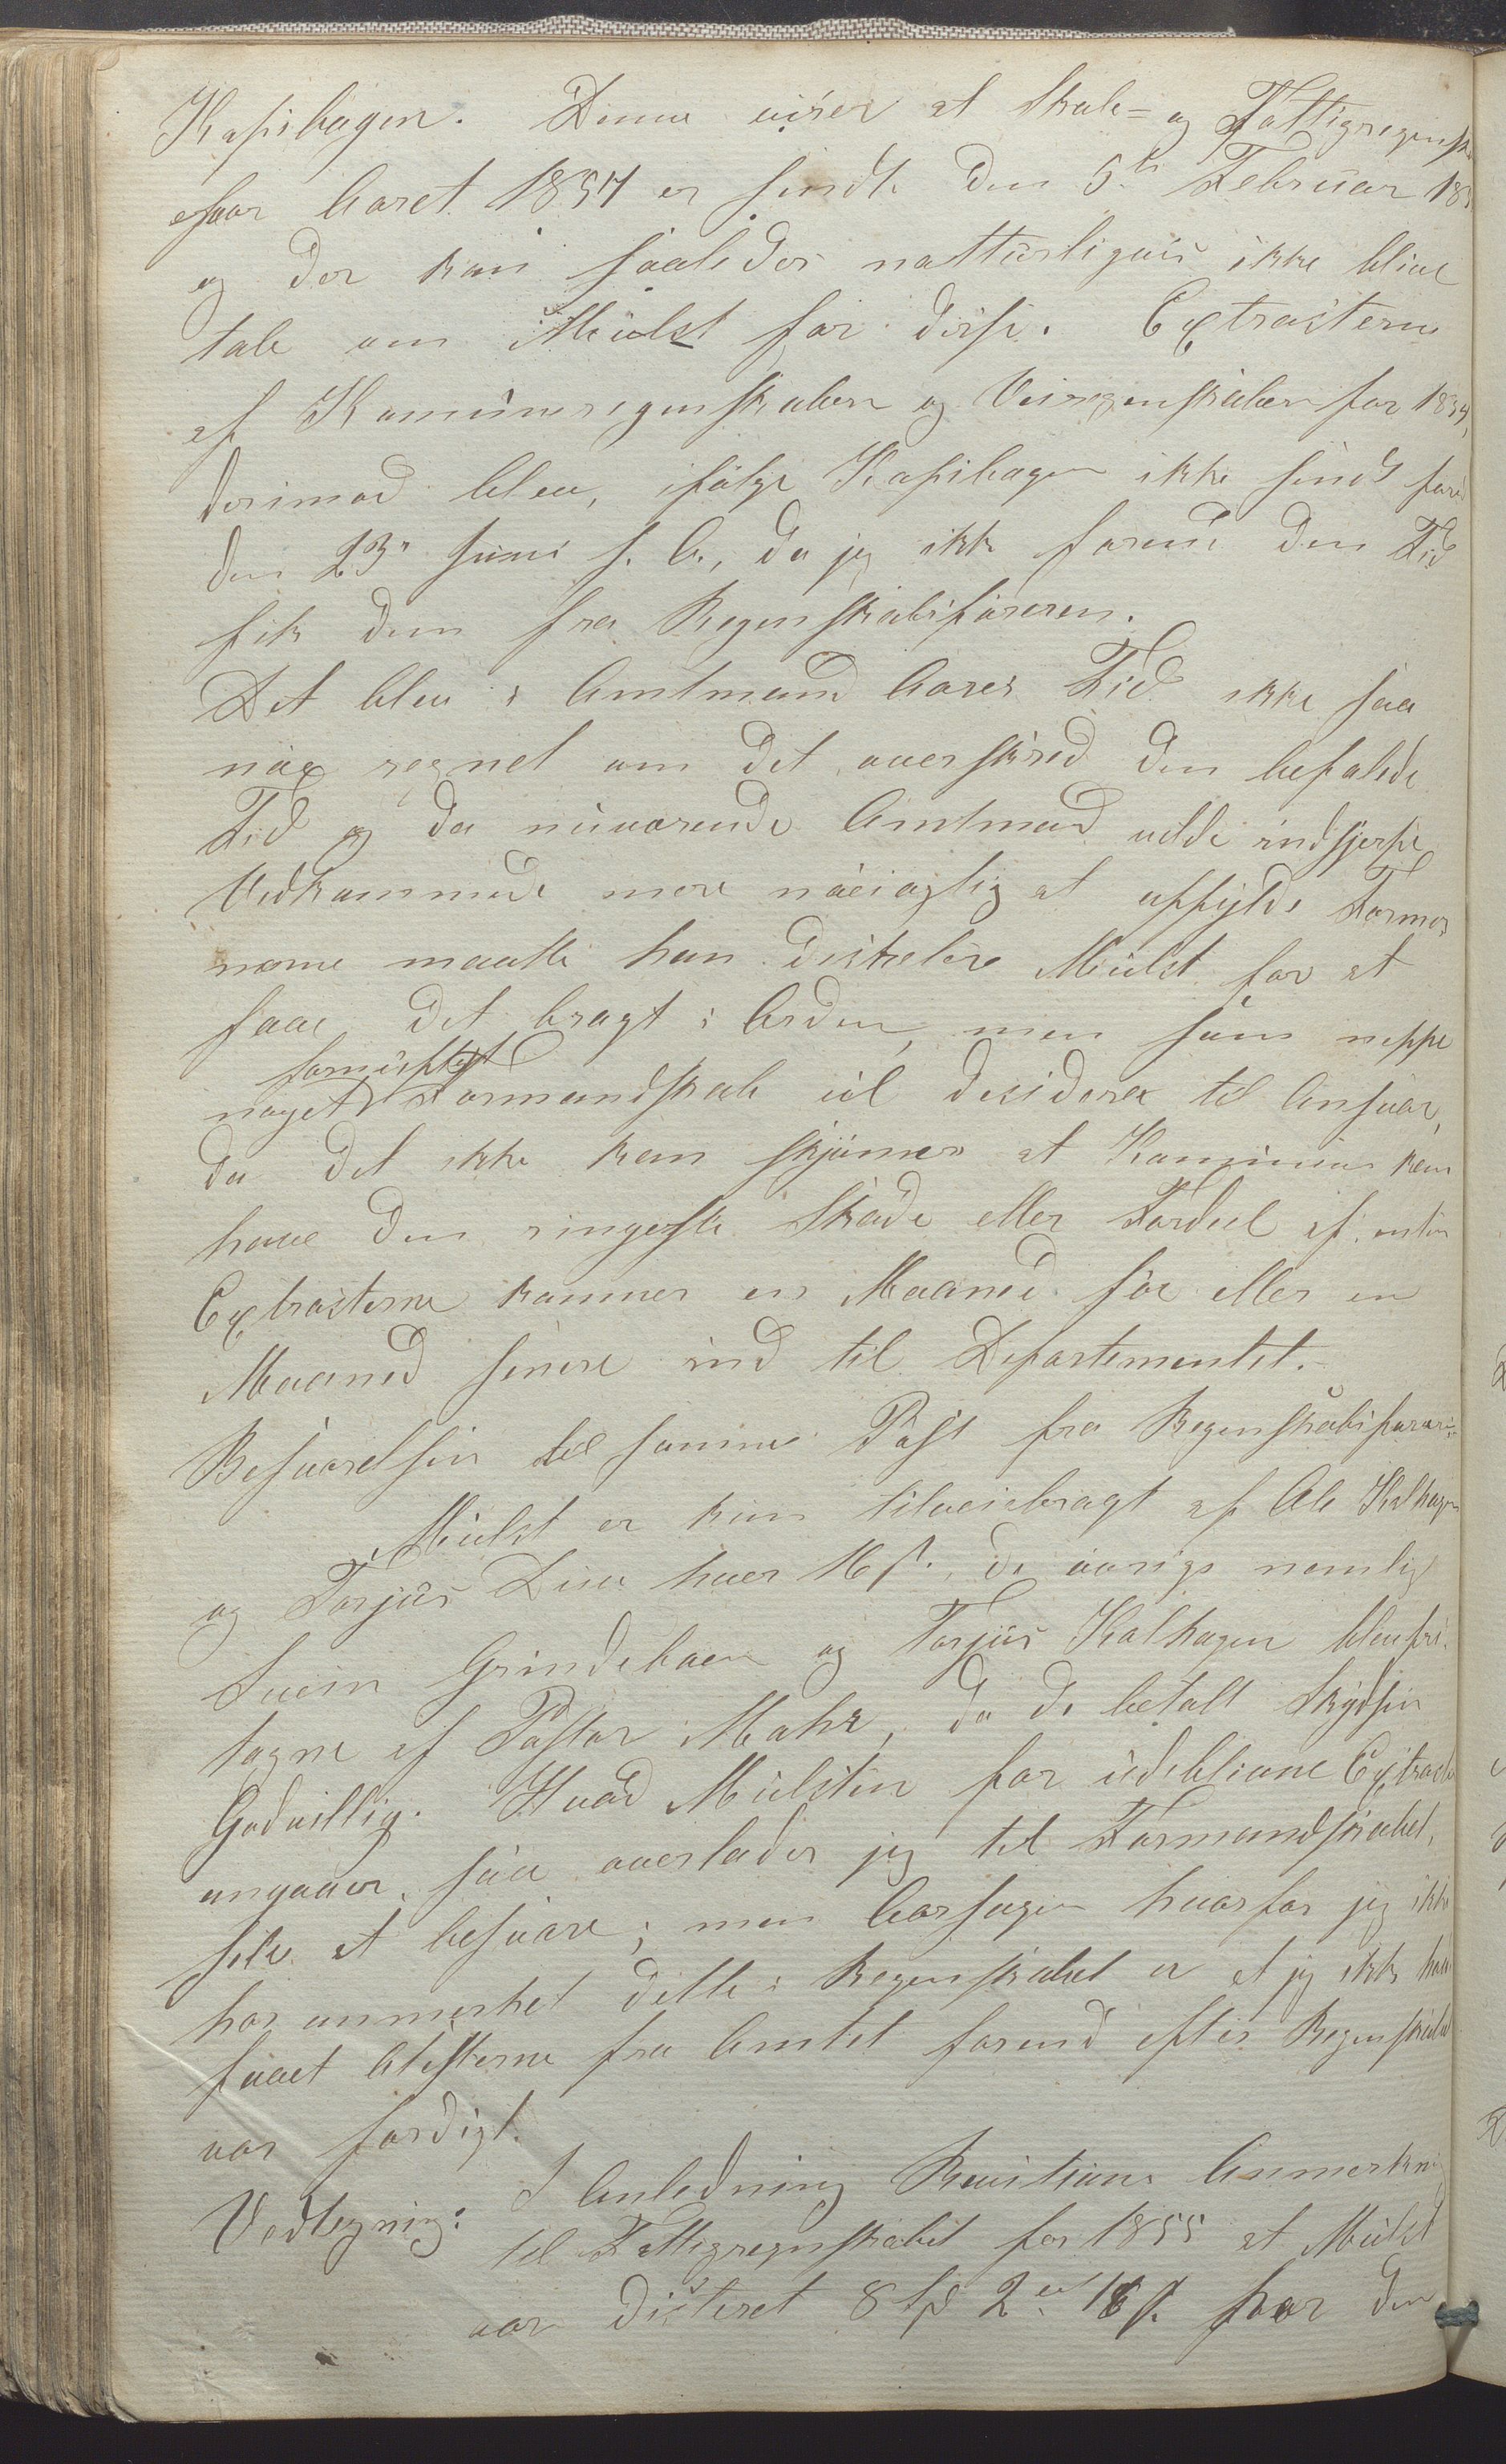 Kopibogen. Denne viser at Skole= og Fattigregnsk
for Aaret 1854 er sendt den 5te Februar 185
og der kan saaledes natturligvis ikke blive
tale om Mulct for disse. Extracterne
af Komuneregnskaben og Veiregnskaben for 1854,
derimod blev, ifölge Kopibogen ikke sendt förend
den 23de Juni s. A., da jeg ikke förend den Tid
fik dem fra Regnskabsföreren.
Det blev i Amtmand Aares Tid ikke saa
nöie regnet om det overskred den befalede
Tid og da nuværende Amtmand vilde indskjerpe
Vedkommende mere nöeiagtig at opfylde Former
nerne maatte han dictere Mulct for at
faae det bragt i Orden, men som neppe
fornuftigt
noget Formandskab vil desidere til Ansvar,
da det ikke kan skjönnes at Kommunen kan
have den ringeste Skade eller Fordeel af enten
Extracterne kommer en Maaned för eller en
Maaned senere ind til Departementet.
Besvarelsen til samme Post fra Regnskabsförere:
Mulct er kun tilveiebragt af Ole Kalhagen
og Torjus Lien hver 16 s. de övrige nemlig
Svein Grindebaen og Torjus Kalhagen blev fri-
tagne af Pastor Mohr, da de betalt Skydsen
Godvillig. Hvad Mulcten for udeblivne Extracter
angaaer, saa overlader jeg til Formandskabet,
selv at besvare; men Aarsagen hvorfor jeg ikke
har anmerket dette i Regnskabet er at jeg ikke har
faaet Atesterne fra Amtet förend efter Regnskabet
var færdigt.
Vedtegning: I Anledning Revisions Anmerkning
til Fattigregnskabet for 1855 at Mulct
var dicteret 8 Spd 2 ort 16 s. for den